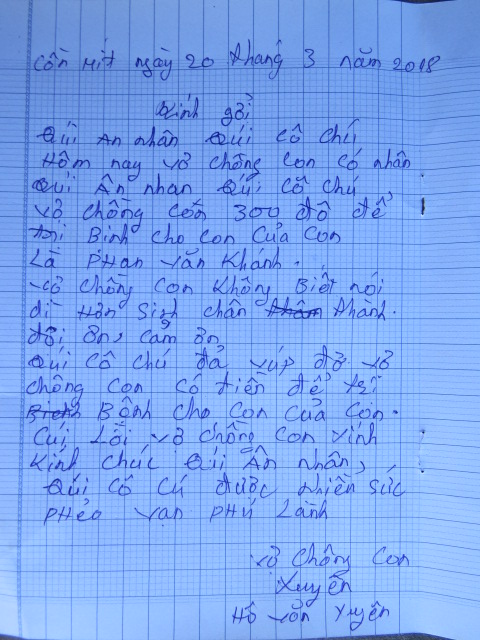 cồn Hít ngày 20 tháng 3 năm 2018
Kính gởi
Quí Ân nhân Quí cô chú
Hôm nay vở chồng con có nhân
Quí Ân nhân Quí cô chú
vở chồng con 300 đô để
trị Binh cho con Của con
Là PHan văn Khánh.
vở chồng con không Biết nói
dì Hơn Sinh chân thành.
đội ơn, cảm ơn
Quí cô chú đả vúp đở vở
chồng con có tiền để trĩ
Bônh cho con Của con.
Cúi Lồi vở chồng con vính
Kính chúc Quí Ân nhân,
Quí cô cú được nhiên sức
PHẻo vạn PHú Lành
vở Chồng con
Xuyến
Hồ văn Xuyên